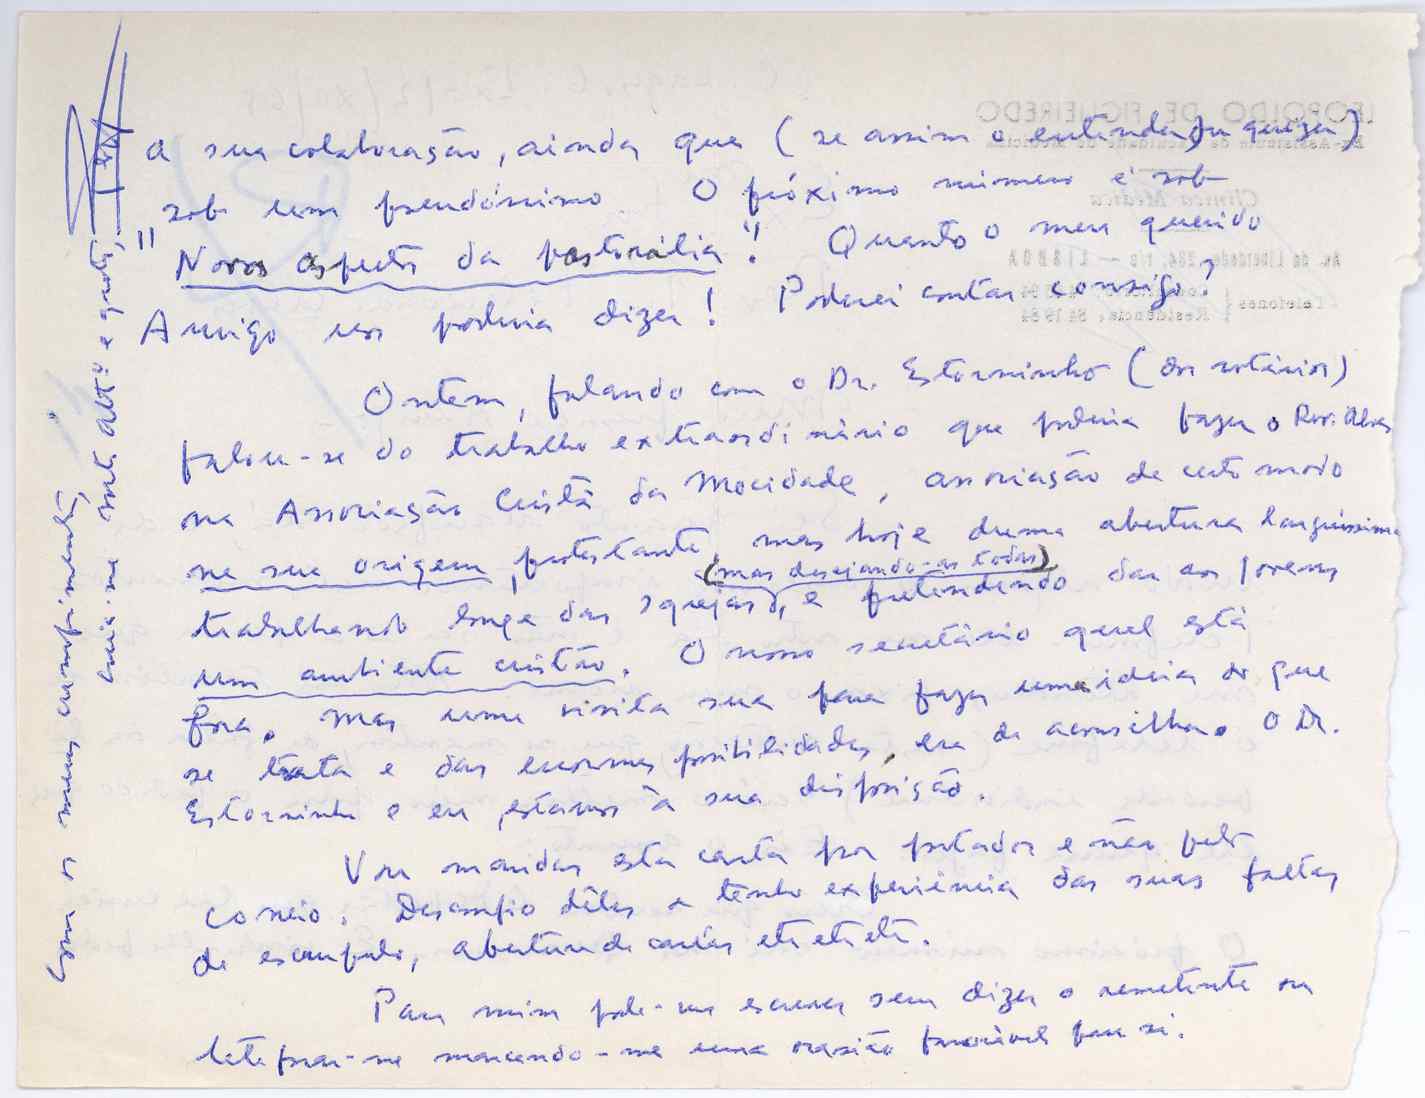 a sua colaboração, ainda que (se assim o entender ou quizer)
sob um pseudónimo. O próximo número é sob
"Novos aspectos da pastorália". Quanto o meu querido
Amigo nos poderia dizer! Poderei contar consigo?
Ontem, falando com o Dr. Estorninho (dos rotários)
falou-se do trabalho extraordinário que poderia fazer o Rev. Alves
na Associação Cristã da Mocidade, associação de certo modo
na sua origem, protestante, mas hoje duma abertura larguíssima
(mas desejando-as todas)
trabalhando longe das Igrejas, e pretendendo dar aos jovens
um ambiente cristão. O nosso secretário geral está
fora. Mas uma visita sua para fazer uma ideia do que
se trata e das enormes possibilidades, era de aconselhar. O Dr.
Estorninho e eu, estamos à sua disposição.
Vou mandar esta carta por portador e não pelo
correio. Desconfio dêles e tenho experiência das suas faltas
de escrupulo, abertura de cartas etc etc etc.
Para mim pode-me escrever sem dizer o remetente ou
telefonar-me marcando-me uma ocasião favorável para si.
Com os meus cumprimentos,
creia-me muito attº e grato,
LEOPOLDO DE FIGUEIREDO
Ex-Assistente da Faculdade de Medicina
Clínica Médica
Av. da Liberdade, 224, r/c — LISBOA
Telefones
Residência,